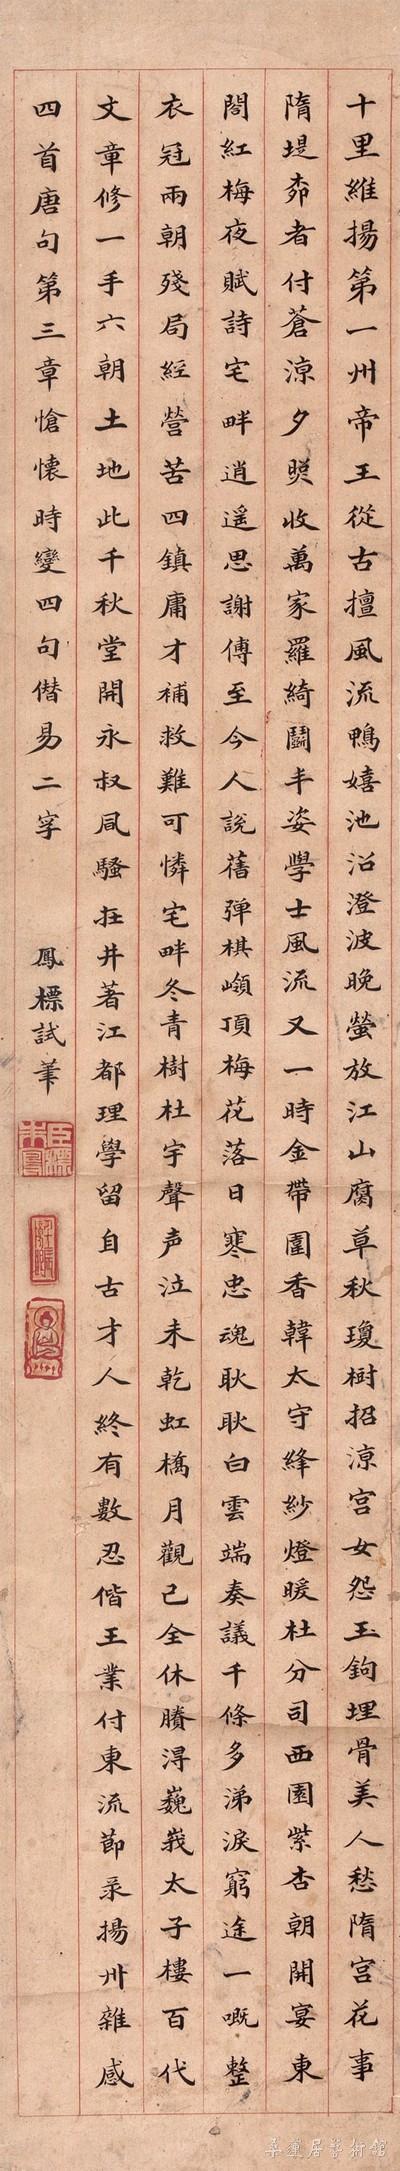 十里維揚第一州帝王從古擅風流鴨嬉池沼澄波晚螢放江山腐草秋瓊樹招涼宮女怨玉鉤埋骨美人愁隋宮花事
隋堤者付蒼涼夕照收萬家羅綺鬪丰姿學士風流又一時金帶圍香韓太守絳紗燈暖杜分司西園紫杏朝開宴東
閤紅梅夜賦詩宅畔逍遙思謝傅至今人說舊彈棋嶺頂梅花落日寒忠魂耿耿白雲端奏議千條多涕淚窮途一慨整
衣冠兩朝殘局經營苦四鎮庸才補救難可憐宅畔冬青樹杜宇聲声泣未乾虹橋月觀已全休賸淂巍峩太子樓百代
文章修一手六朝土地此千秋堂開永叔凬騷在井著江都理學留自古才人終有數忍偕王業付東流節录揚州雜感
四首唐句第三章愴懷時變四句僭易二字 鳳標試筆